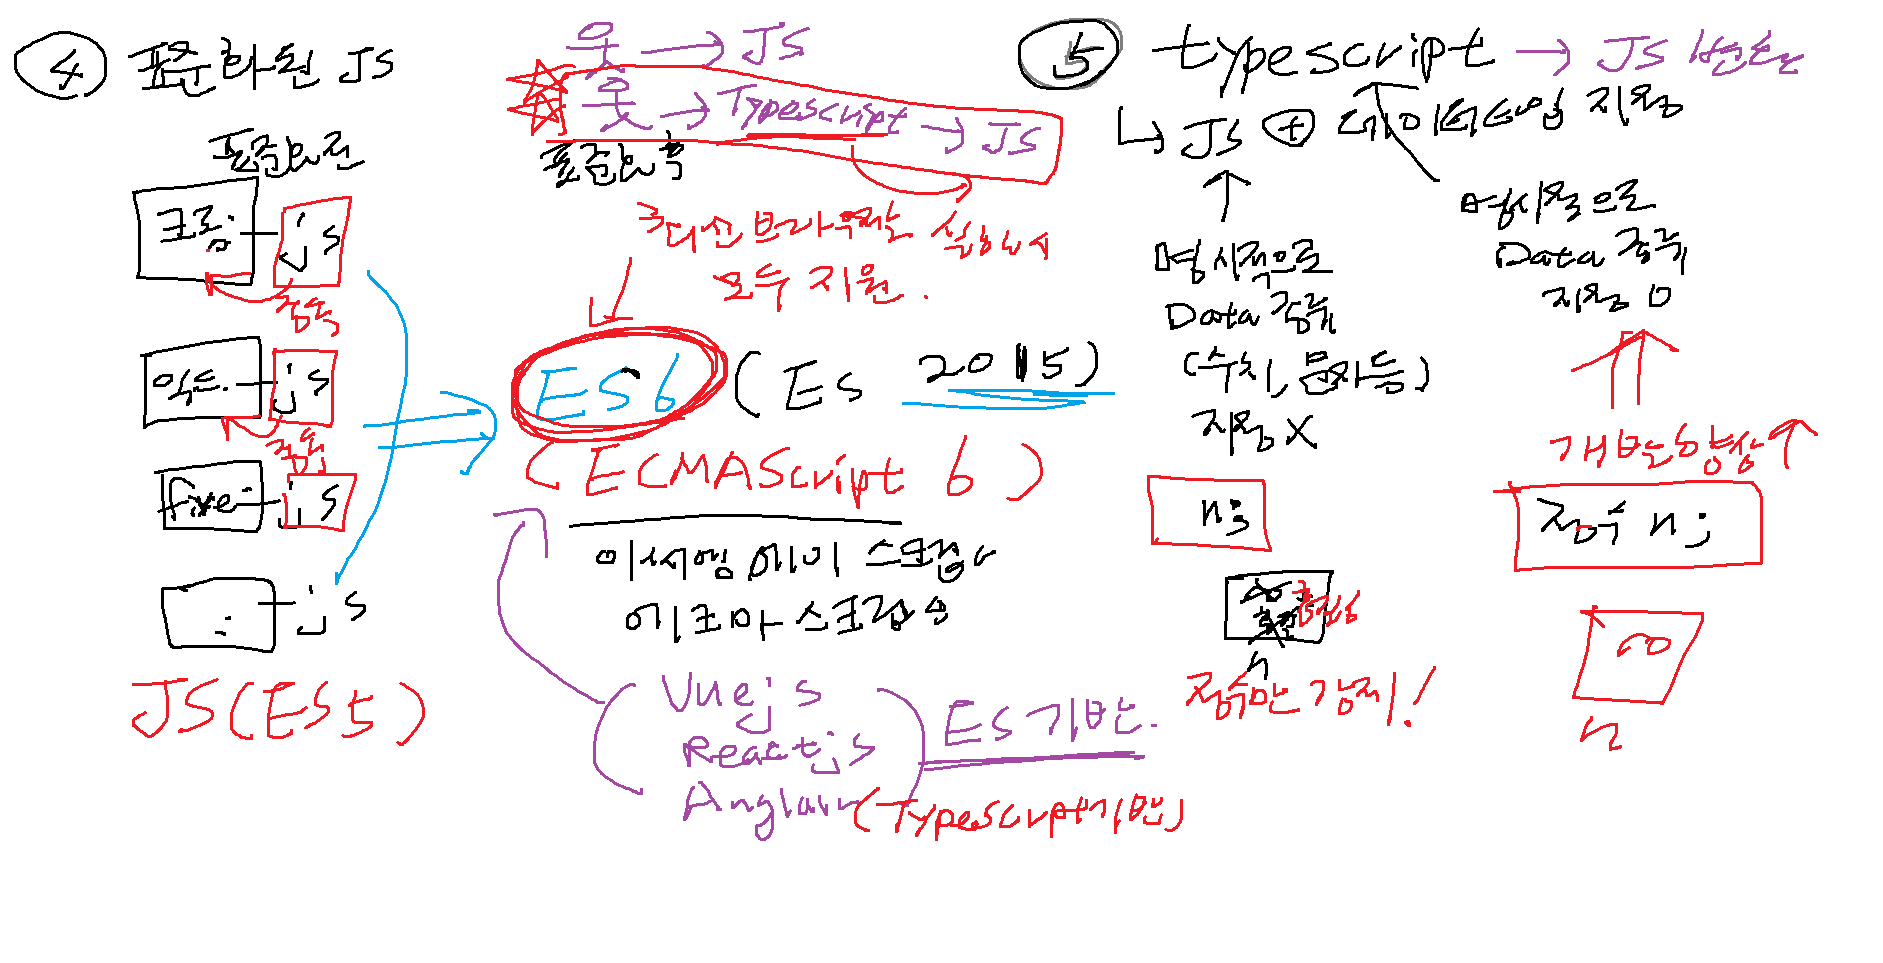 ④ 표준화된 JS
표준화전
크롬 js
종속
익스. js
종속
fire js
: js
JS(ES5)
웃 → JS
웃 → Typescript → JS
표준화후
최신 브라우져는 실행시
모두 지원.
ES6 (ES 2015)
(ECMAScript 6)
이시에엠에이 스크립트
에크마스크립트
Vuejs
Reactjs
Anglair (Typescript기반)
ES기반.
⑤ typescript → JS 변환
↳ JS + 데이터타입 지정
명시적으로
Data 종류
(수치, 문자등)
지정 X
n;
n
정수만 강제!
명시적으로
Data 종류
지정 O
개발향상↑
정수 n;
n